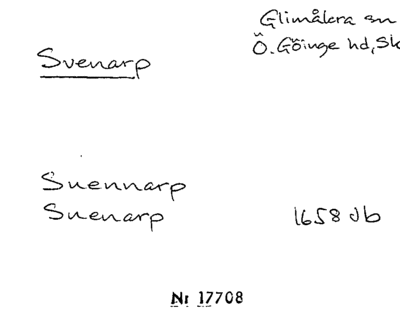 Glimåkra sn
Svenarp
Ö. Göinge hd, Sk
Suennarp
Suenarp 1658 Jb
Nr 17708